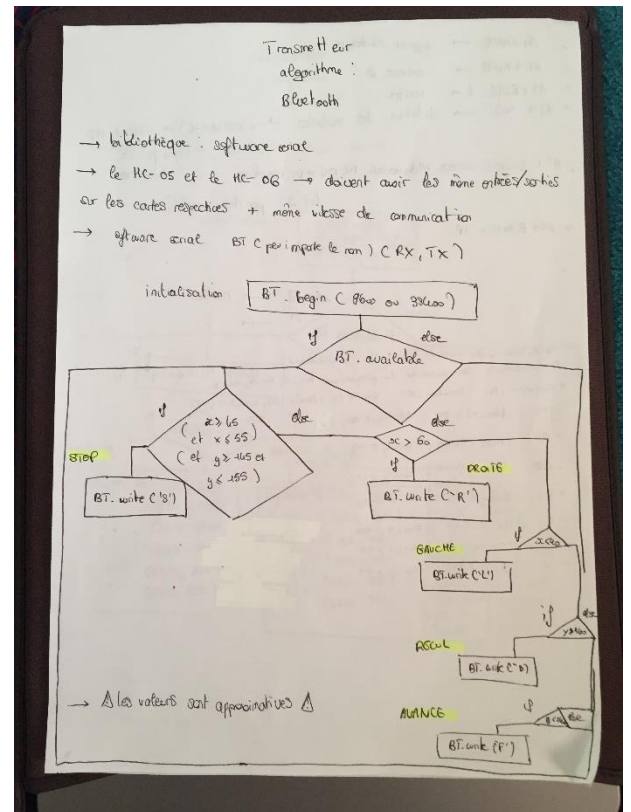 Transmetteur
algorithme :
Bluetooth
→ bibliothèque : software serial
→ le HC-05 et le HC-06 → doivent avoir les même entrées/sorties
sur les cartes respectives + même vitesse de communication
→ software serial BT (peu importe le nom) (RX, TX)
initialisation
BT. begin ( 9600 ou 38400 )
if
else
BT. available
if
( et x ≤ 55 )
( et y ≥ 145 et
y ≤ 155 )
else
else
x > 60
STOP
BT. write ('S')
if
DROITE
BT. write ('R')
if
GAUCHE
BT. write ('L')
if
else
RECUL
BT. write
if
AVANCE
else
BT. write ('F')
→ ⚠ les valeurs sont approximatives ⚠